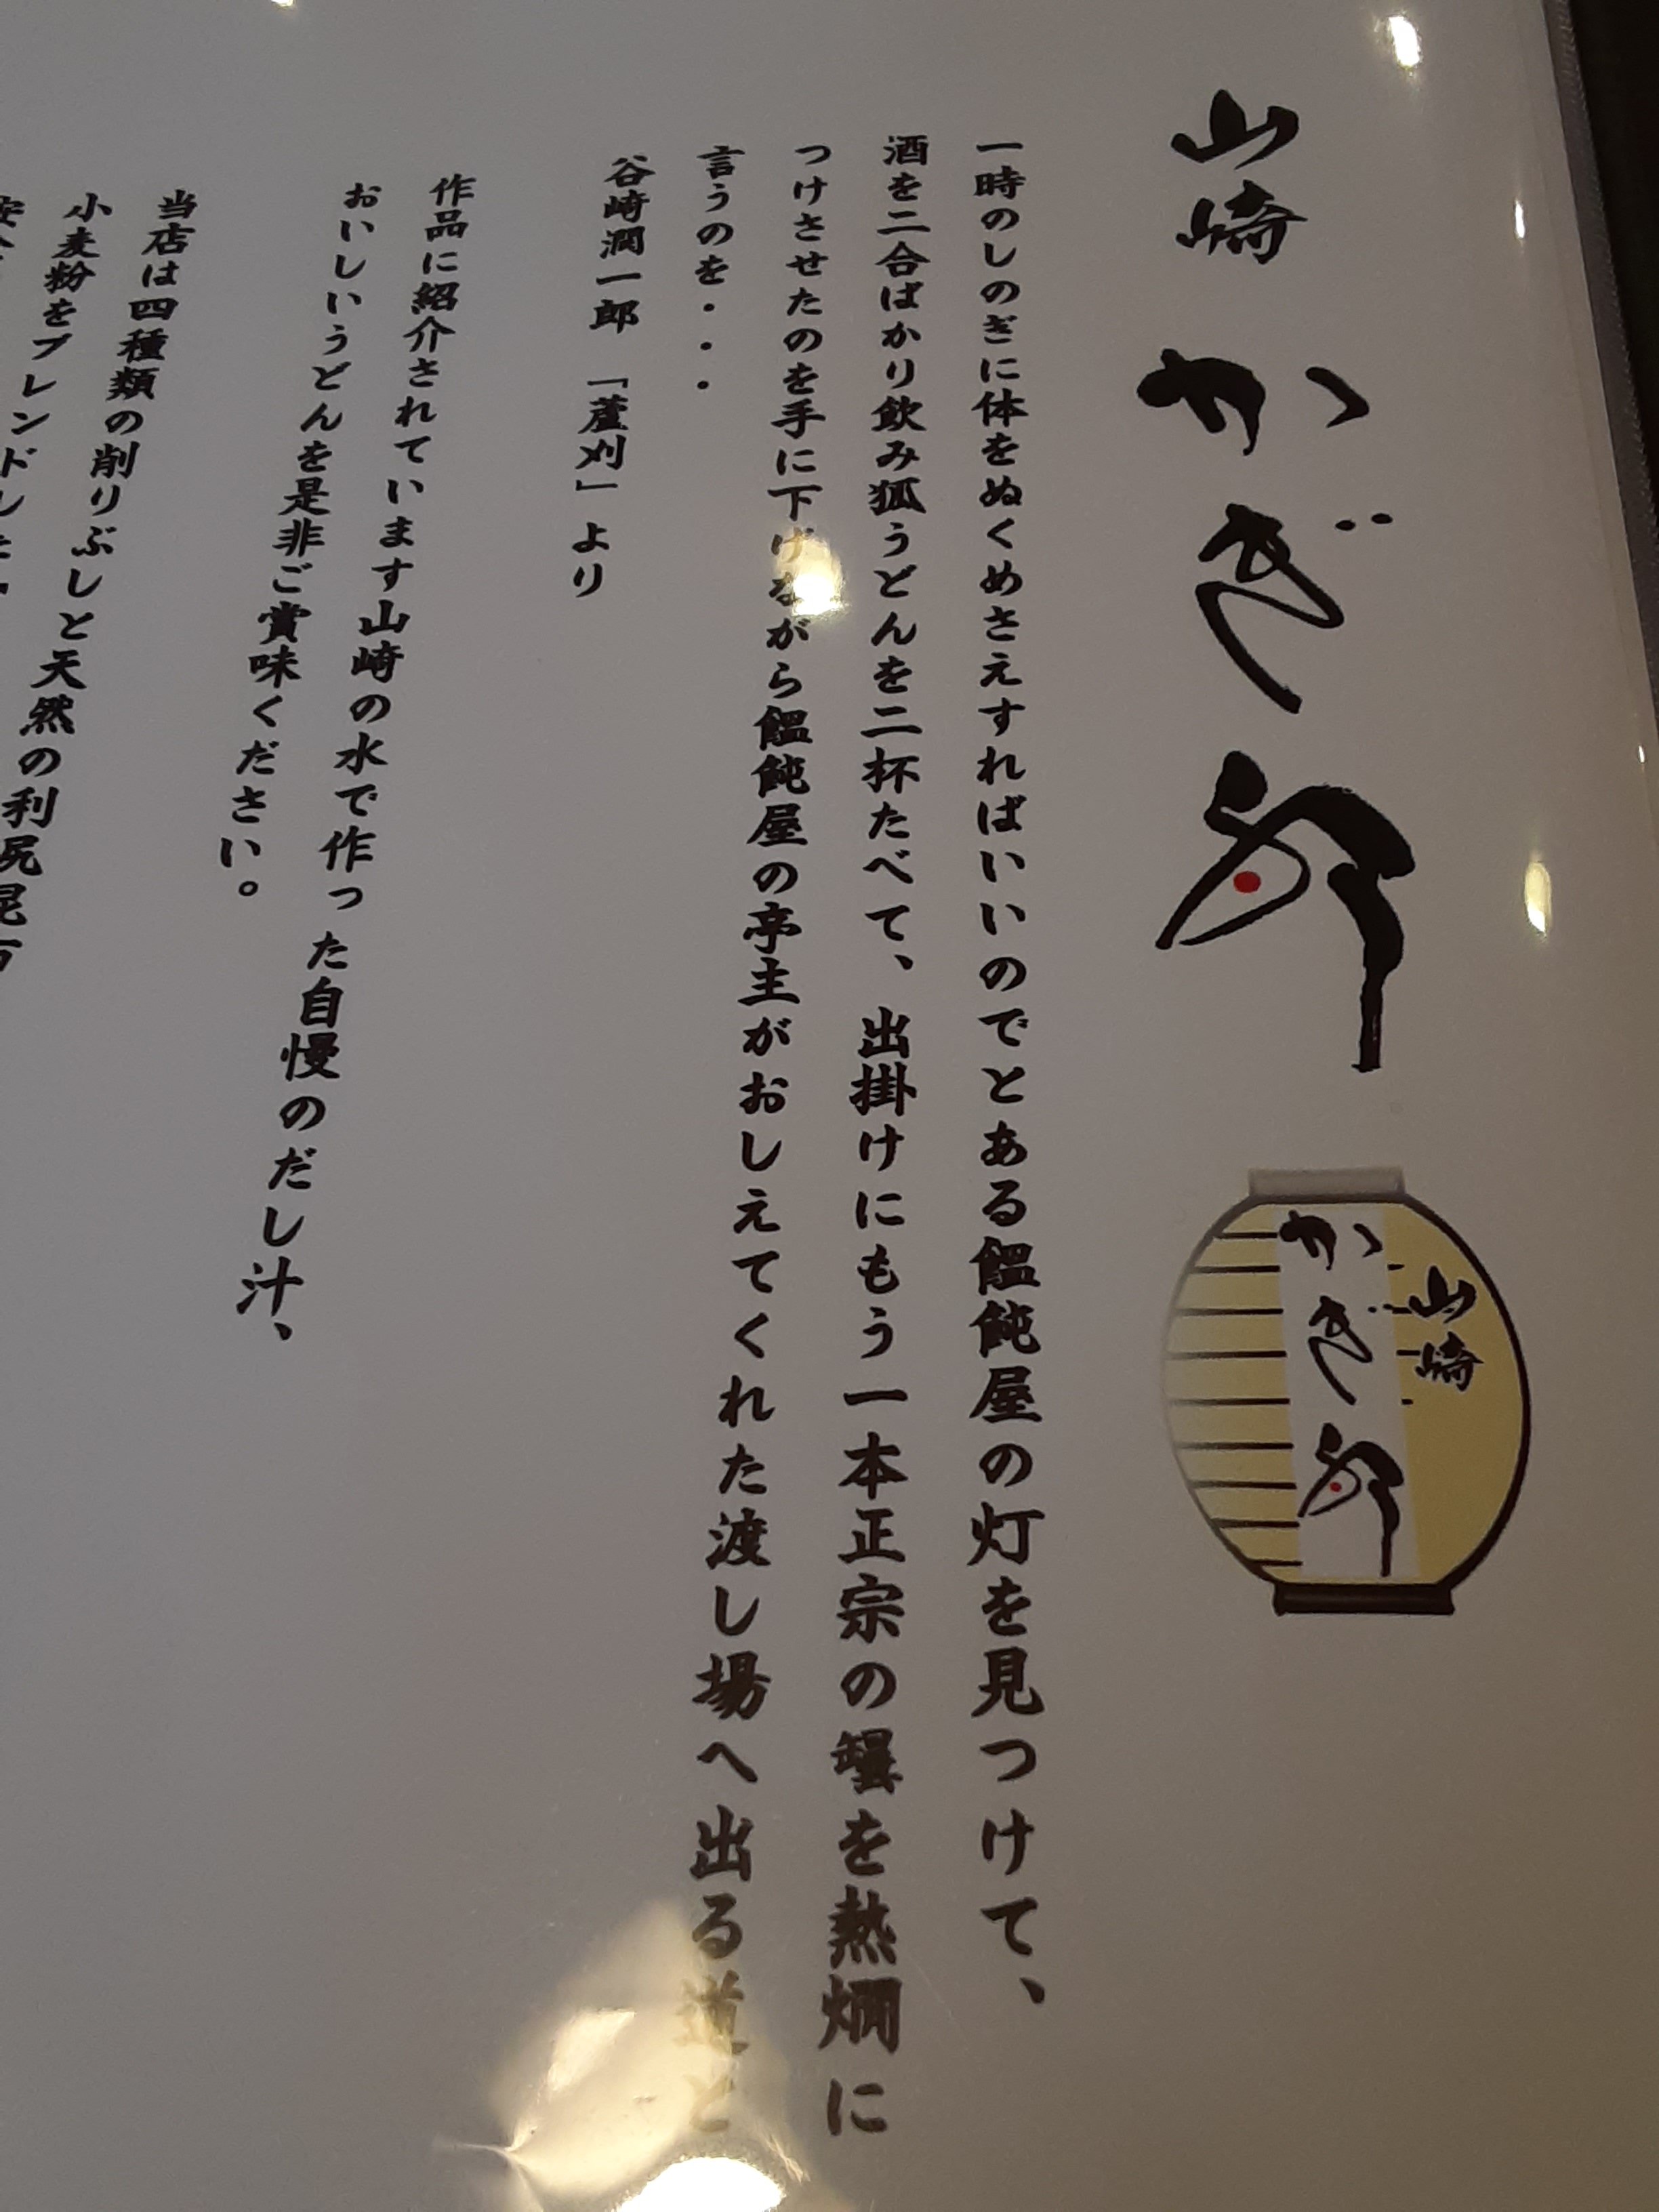 山崎 かぎ卯
かぎ卯
山崎
一時のしのぎに体をぬくめさえすればいいのでとある饂飩屋の灯を見つけて、
酒を二合ばかり飲み狐うどんを二杯たべて、出掛けにもう一本正宗の罎を熱燗に
つけさせたのを手に下げながら饂飩屋の亭主がおしえてくれた渡し場へ出る道と
言うのを・・・
谷崎潤一郎 「蘆刈」より
作品に紹介されています山崎の水で作った自慢のだし汁、
おいしいうどんを是非ご賞味ください。
当店は四種類の削りぶしと天然の利尻昆布
小麦粉をブレンドした